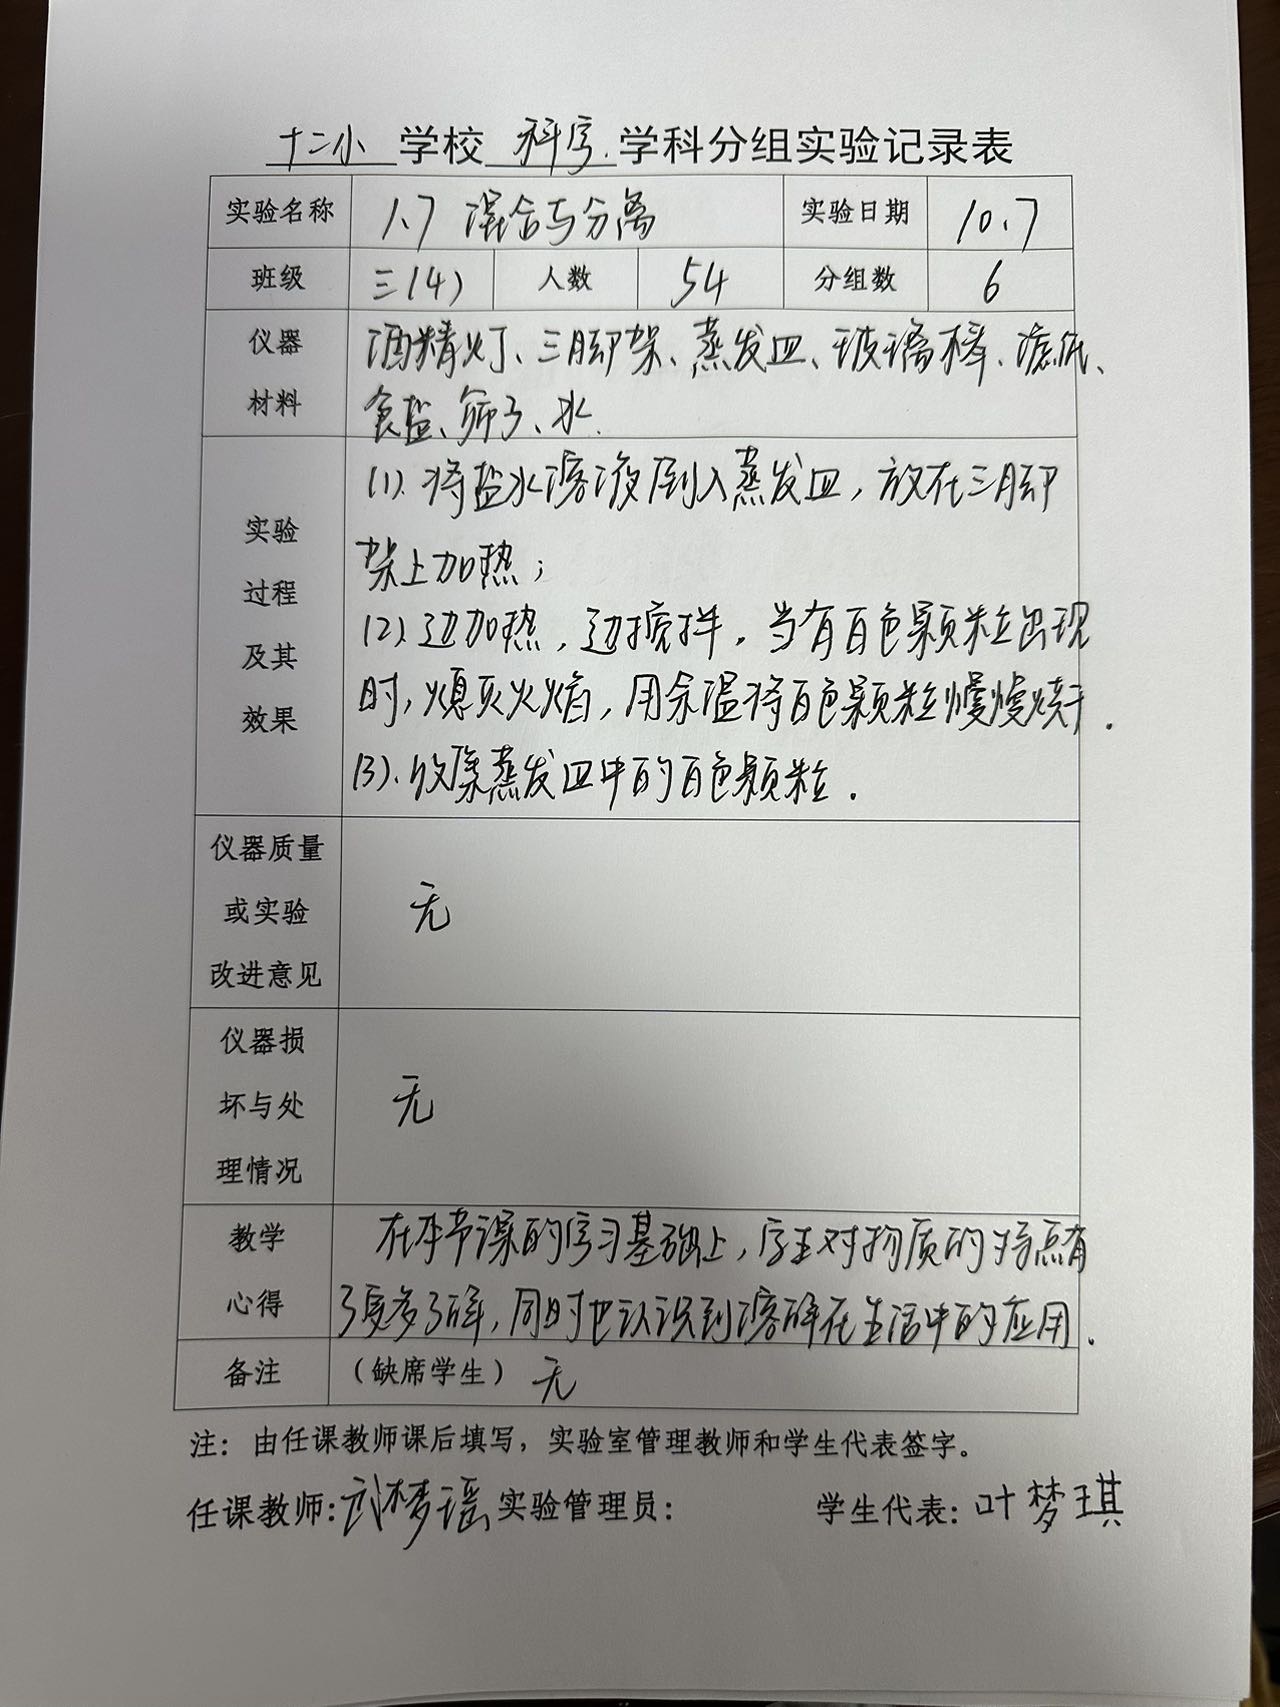 十二小 学校 科学 学科分组实验记录表
实验名称 1.7 混合与分离 实验日期 10.7
班级 三(4) 人数 54 分组数 6
仪器材料 酒精灯、三脚架、蒸发皿、玻璃棒、滤纸、
食盐、筛子、水.
实验过程及其效果
(1).将盐水溶液倒入蒸发皿,放在三脚
架上加热;
(2).边加热,边搅拌,当有白色颗粒出现
时,熄灭火焰,用余温将白色颗粒慢慢烧干.
(3).收集蒸发皿中的白色颗粒.
仪器质量或实验改进意见 无
仪器损坏与处理情况 无
教学心得 在本节课的学习基础上,学生对物质的特点有
了更多了解,同时也认识到溶解在生活中的应用.
备注 (缺席学生) 无
注:由任课教师课后填写,实验室管理教师和学生代表签字。
任课教师:武梦瑶 实验管理员: 学生代表:叶梦琪